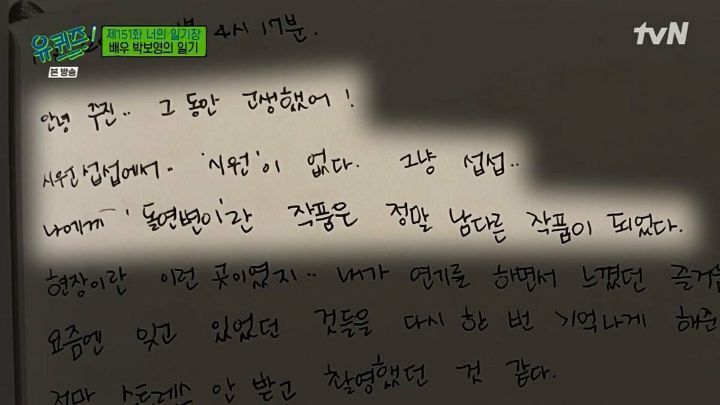 유퀴즈!
본 방송
제151화 너의 일기장
배우 박보영의 일기
tvN
4시 17분.
안녕 주진.. 그 동안 고생했어!
시원섭섭에서.. '시원'이 없다. 그냥 섭섭..
나에게 '돌연변이'란 작품은 정말 남다른 작품이 되었다.
현장이란 이런 곳이였지.. 내가 연기를 하면서 느꼈던 즐거움
요즘엔 잊고 있었던 것들을 다시 한 번 기억나게 해준
정말 스트레스 안 받고 촬영했던 것 같다.